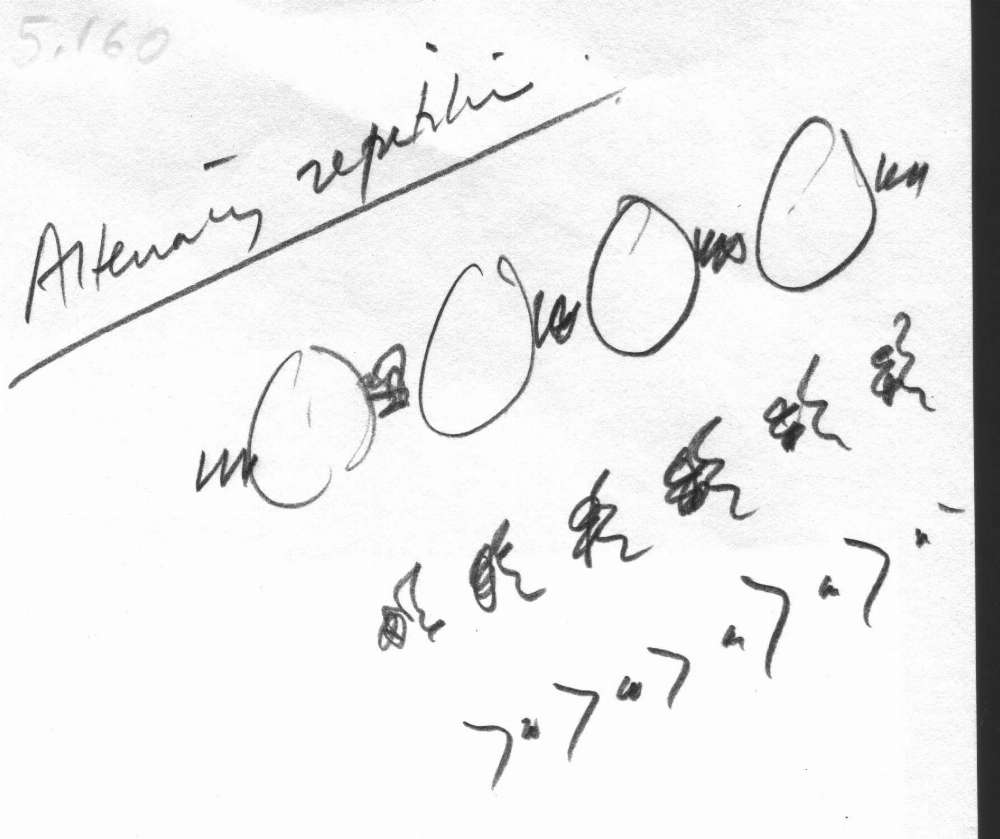 5.160
Alternating repetition